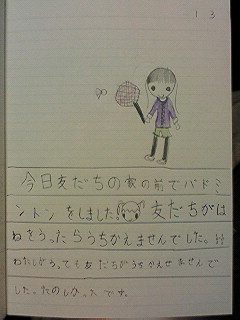 13
今日友だちの家の前でバドミ
ントンをしました。友だちがは
ねをうったらうちかえせんでした。
わたしがうっても友だちがうちかえせませんで
した。たのしかったです。